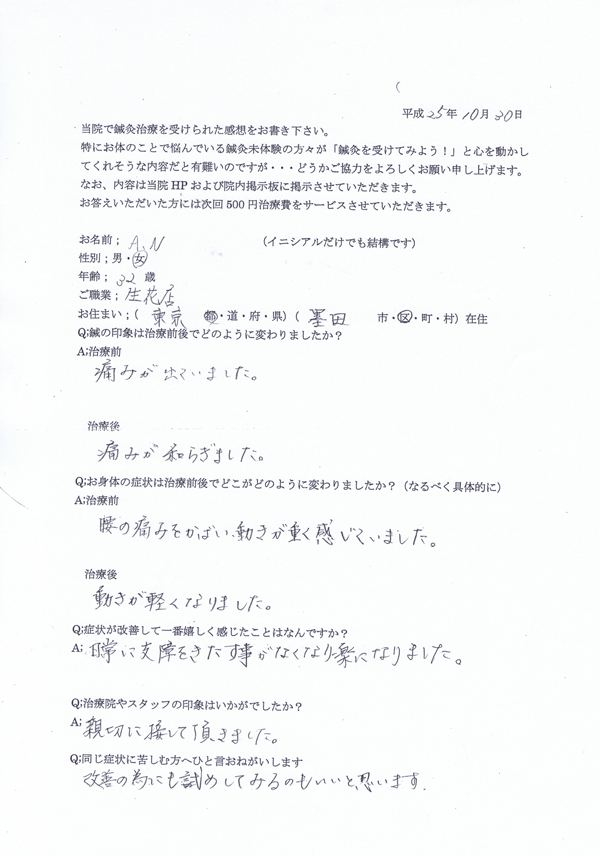 平成25年10月30日
当院で鍼灸治療を受けられた感想をお書き下さい。
特にお体のことで悩んでいる鍼灸未体験の方々が「鍼灸を受けてみよう！」と心を動かし
てくれそうな内容だと有難いのですが・・・どうかご協力をよろしくお願い申し上げます。
なお、内容は当院 HP および院内掲示板に掲示させていただきます。
お答えいただいた方には次回 500 円治療費をサービスさせていただきます。
お名前； A.N （イニシアルだけでも結構です）
性別；男・女
年齢；32 歳
ご職業；生花店
お住まい；（ 東京 都・道・府・県）（ 墨田 市・区・町・村）在住
Q;鍼の印象は治療前後でどのように変わりましたか？
A;治療前
痛みが出ていました。
治療後
痛みが和らぎました。
Q;お身体の症状は治療前後でどこがどのように変わりましたか？（なるべく具体的に）
A;治療前
腰の痛みをかばい動きが重く感じていました。
治療後
動きが軽くなりました。
Q;症状が改善して一番嬉しく感じたことはなんですか？
A; 日常に支障をきたす事がなくなり楽になりました。
Q;治療院やスタッフの印象はいかがでしたか？
A; 親切に接して頂きました。
Q;同じ症状に苦しむ方へひと言おねがいします
改善の為にも試めしてみるのもいいと思います.